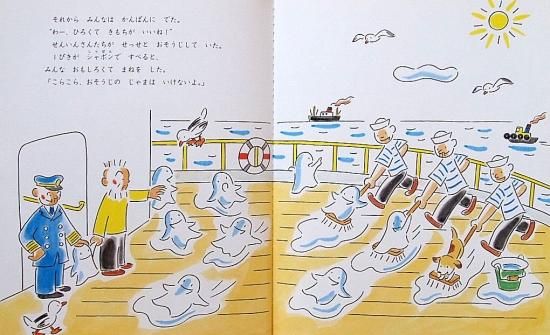 それから みんなは かんぱんに でた。
「わー、ひろくて きもちが いいね!」
せんいんさんたちが せっせと おそうじして いた。
1ぴきが シャボンで すべると、
みんな おもしろくて まねを した。
「こらこら、おそうじの じゃまは いけないよ。」